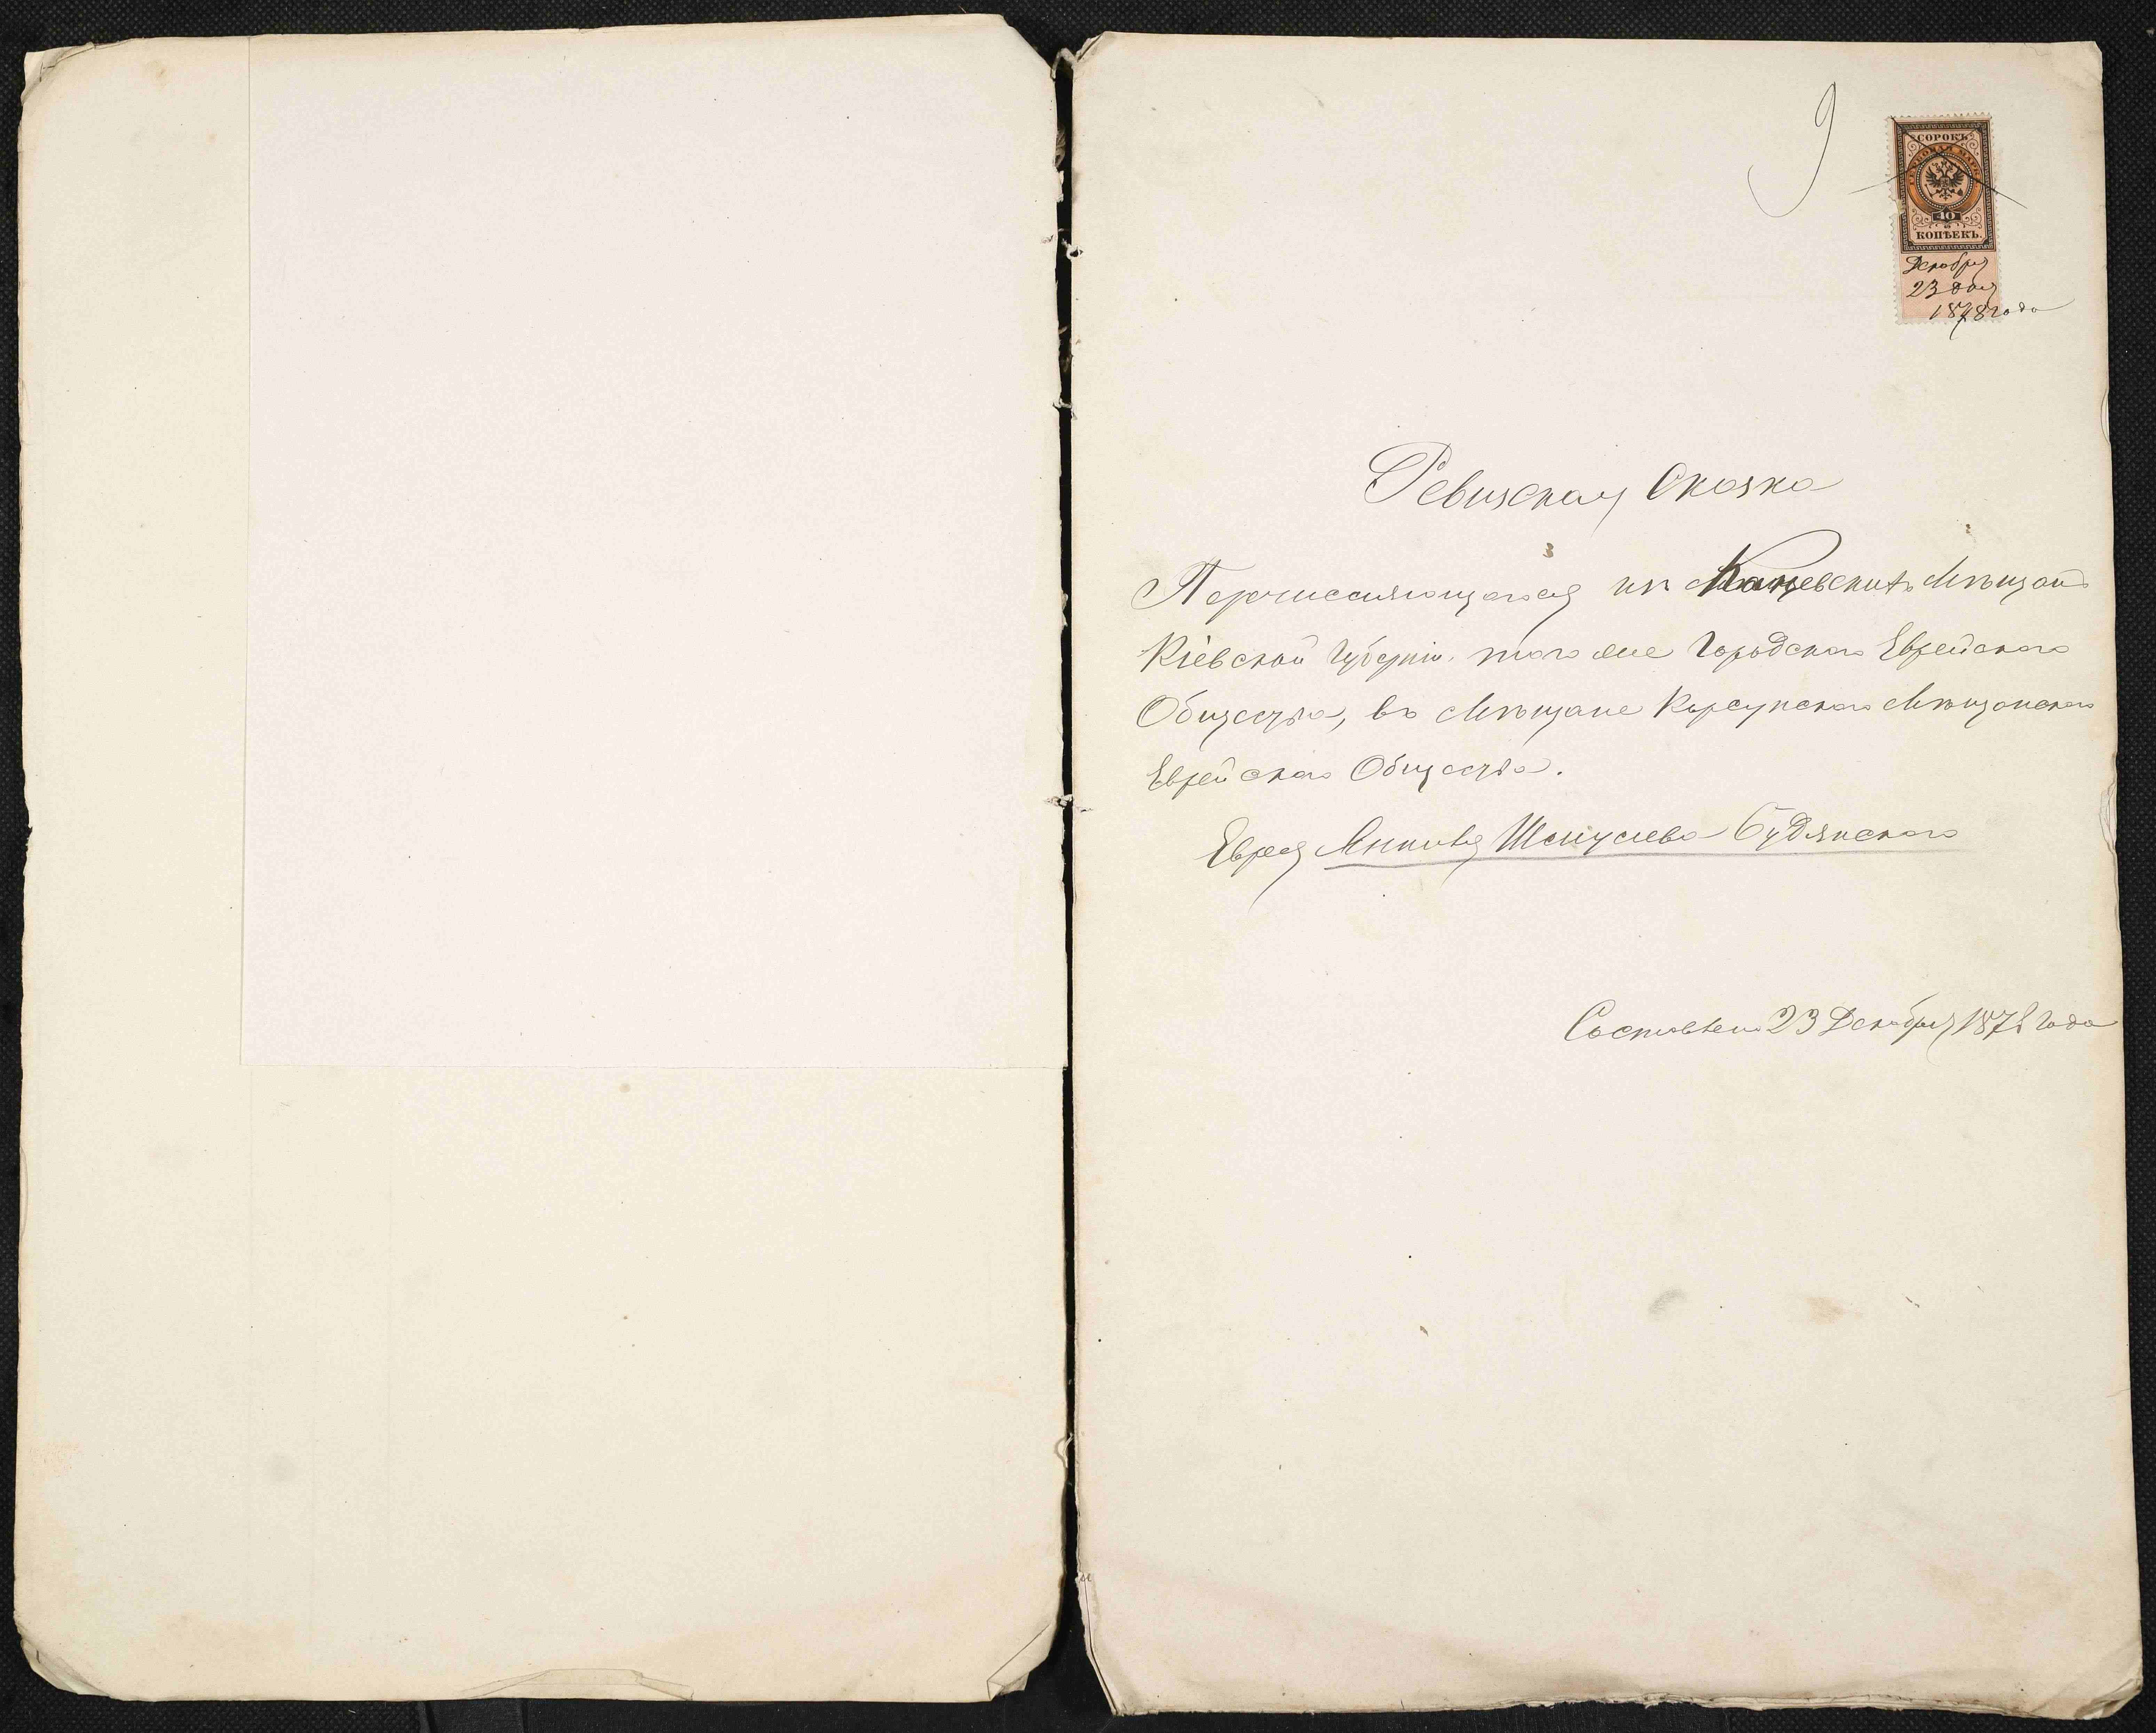 9
СОРОКЪ
ГЕРБОВАЯ МАРКА
40
КОПѢЕКЪ.
Декабря
23 дня
1878 года
Ревизская Сказка
Перечисляющагося изъ Каневскихъ Мѣщанъ
Кіевской Губерніи того же Городского Еврейского
Общества, въ Мѣщане Корсунского Мѣщанского
Еврейского Общества.
Еврея Янкеля Шмулева Будянского
Составлена 23 Декабря 1878 года